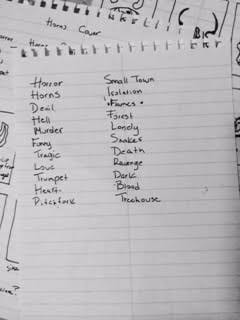 Horns Cover
Horns
Horror
Horns
Devil
Hell
Murder
Funny
Tragic
Love
Trumpet
Heart
Pitchfork
Small Town
Isolation
"Fames"
Forest
Lonely
Snakes
Death
Revenge
Dark
Blood
Treehouse